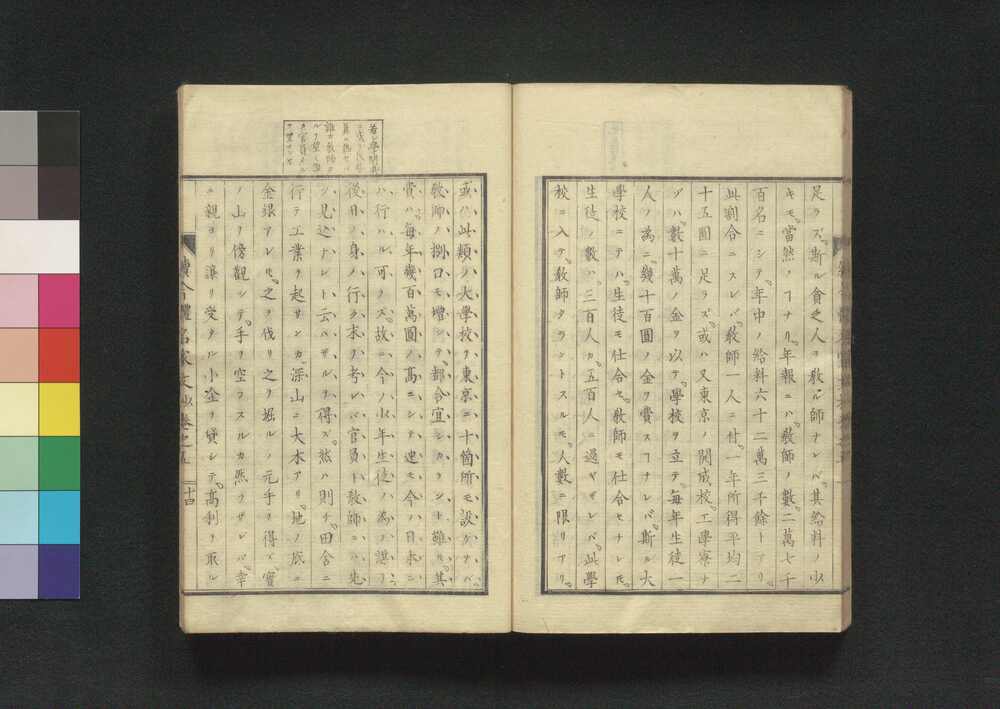 足ラズ斯ル貪乏人ヲ敎ル師ナレバ其給料ノ少
キモ當然ノヿナリ年報ニハ敎師ノ數二萬七千
百名ニシテ年中ノ給料六十二萬三千餘トアリ
此割合ニスレバ敎師一人ニ付一年所得平均二
十五圓ニ足ラズ或ハ又東京ノ開成校工學寮ナ
ゾハ數十萬ノ金ヲ以テ學校ヲ立テ毎年生徒一
人ノ爲ニ幾十百圓ノ金ヲ費スヿナレバ斯ル大
學校ニテハ生徒モ仕合セ敎師モ仕合セナレ𪜈
生徒ノ數ハ三百人カ五百人ニ過ギザレバ此學
校ニ入テ敎師タラントスルモ人數ニ限リアリ
或ハ此類ノ大學校ヲ東京ニ十箇所モ設ケナバ
敎師ノ捌口モ增シテ都合宜シカラント雖ル其
費ハ毎年幾百萬圓ノ高ニシテ迚モ今ノ日本ニ
ハ行ハル可ラズ故ニ今ノ少年生徒ノ爲ノ謀リ
後日ノ身ノ行ク末ヲ考レバ官員ト敎師ニハ先
ヅ見込ナシト云ハザルヲ得ズ然ハ則チ田舎ニ
行テ工業ヲ起サンカ深山ニ大木アリ地ノ底ニ
金銀アレ𪜈之ヲ伐リ之ヲ堀ルノ元手ヲ得ズ寳
ノ山ヲ傍觀シテ手ヲ空ラスルカ然ラザレバ幸
ニ親ヨリ讓リ受タル小金ヲ貸シテ高利ヲ取ル
續今體名家文抄卷之五 十四